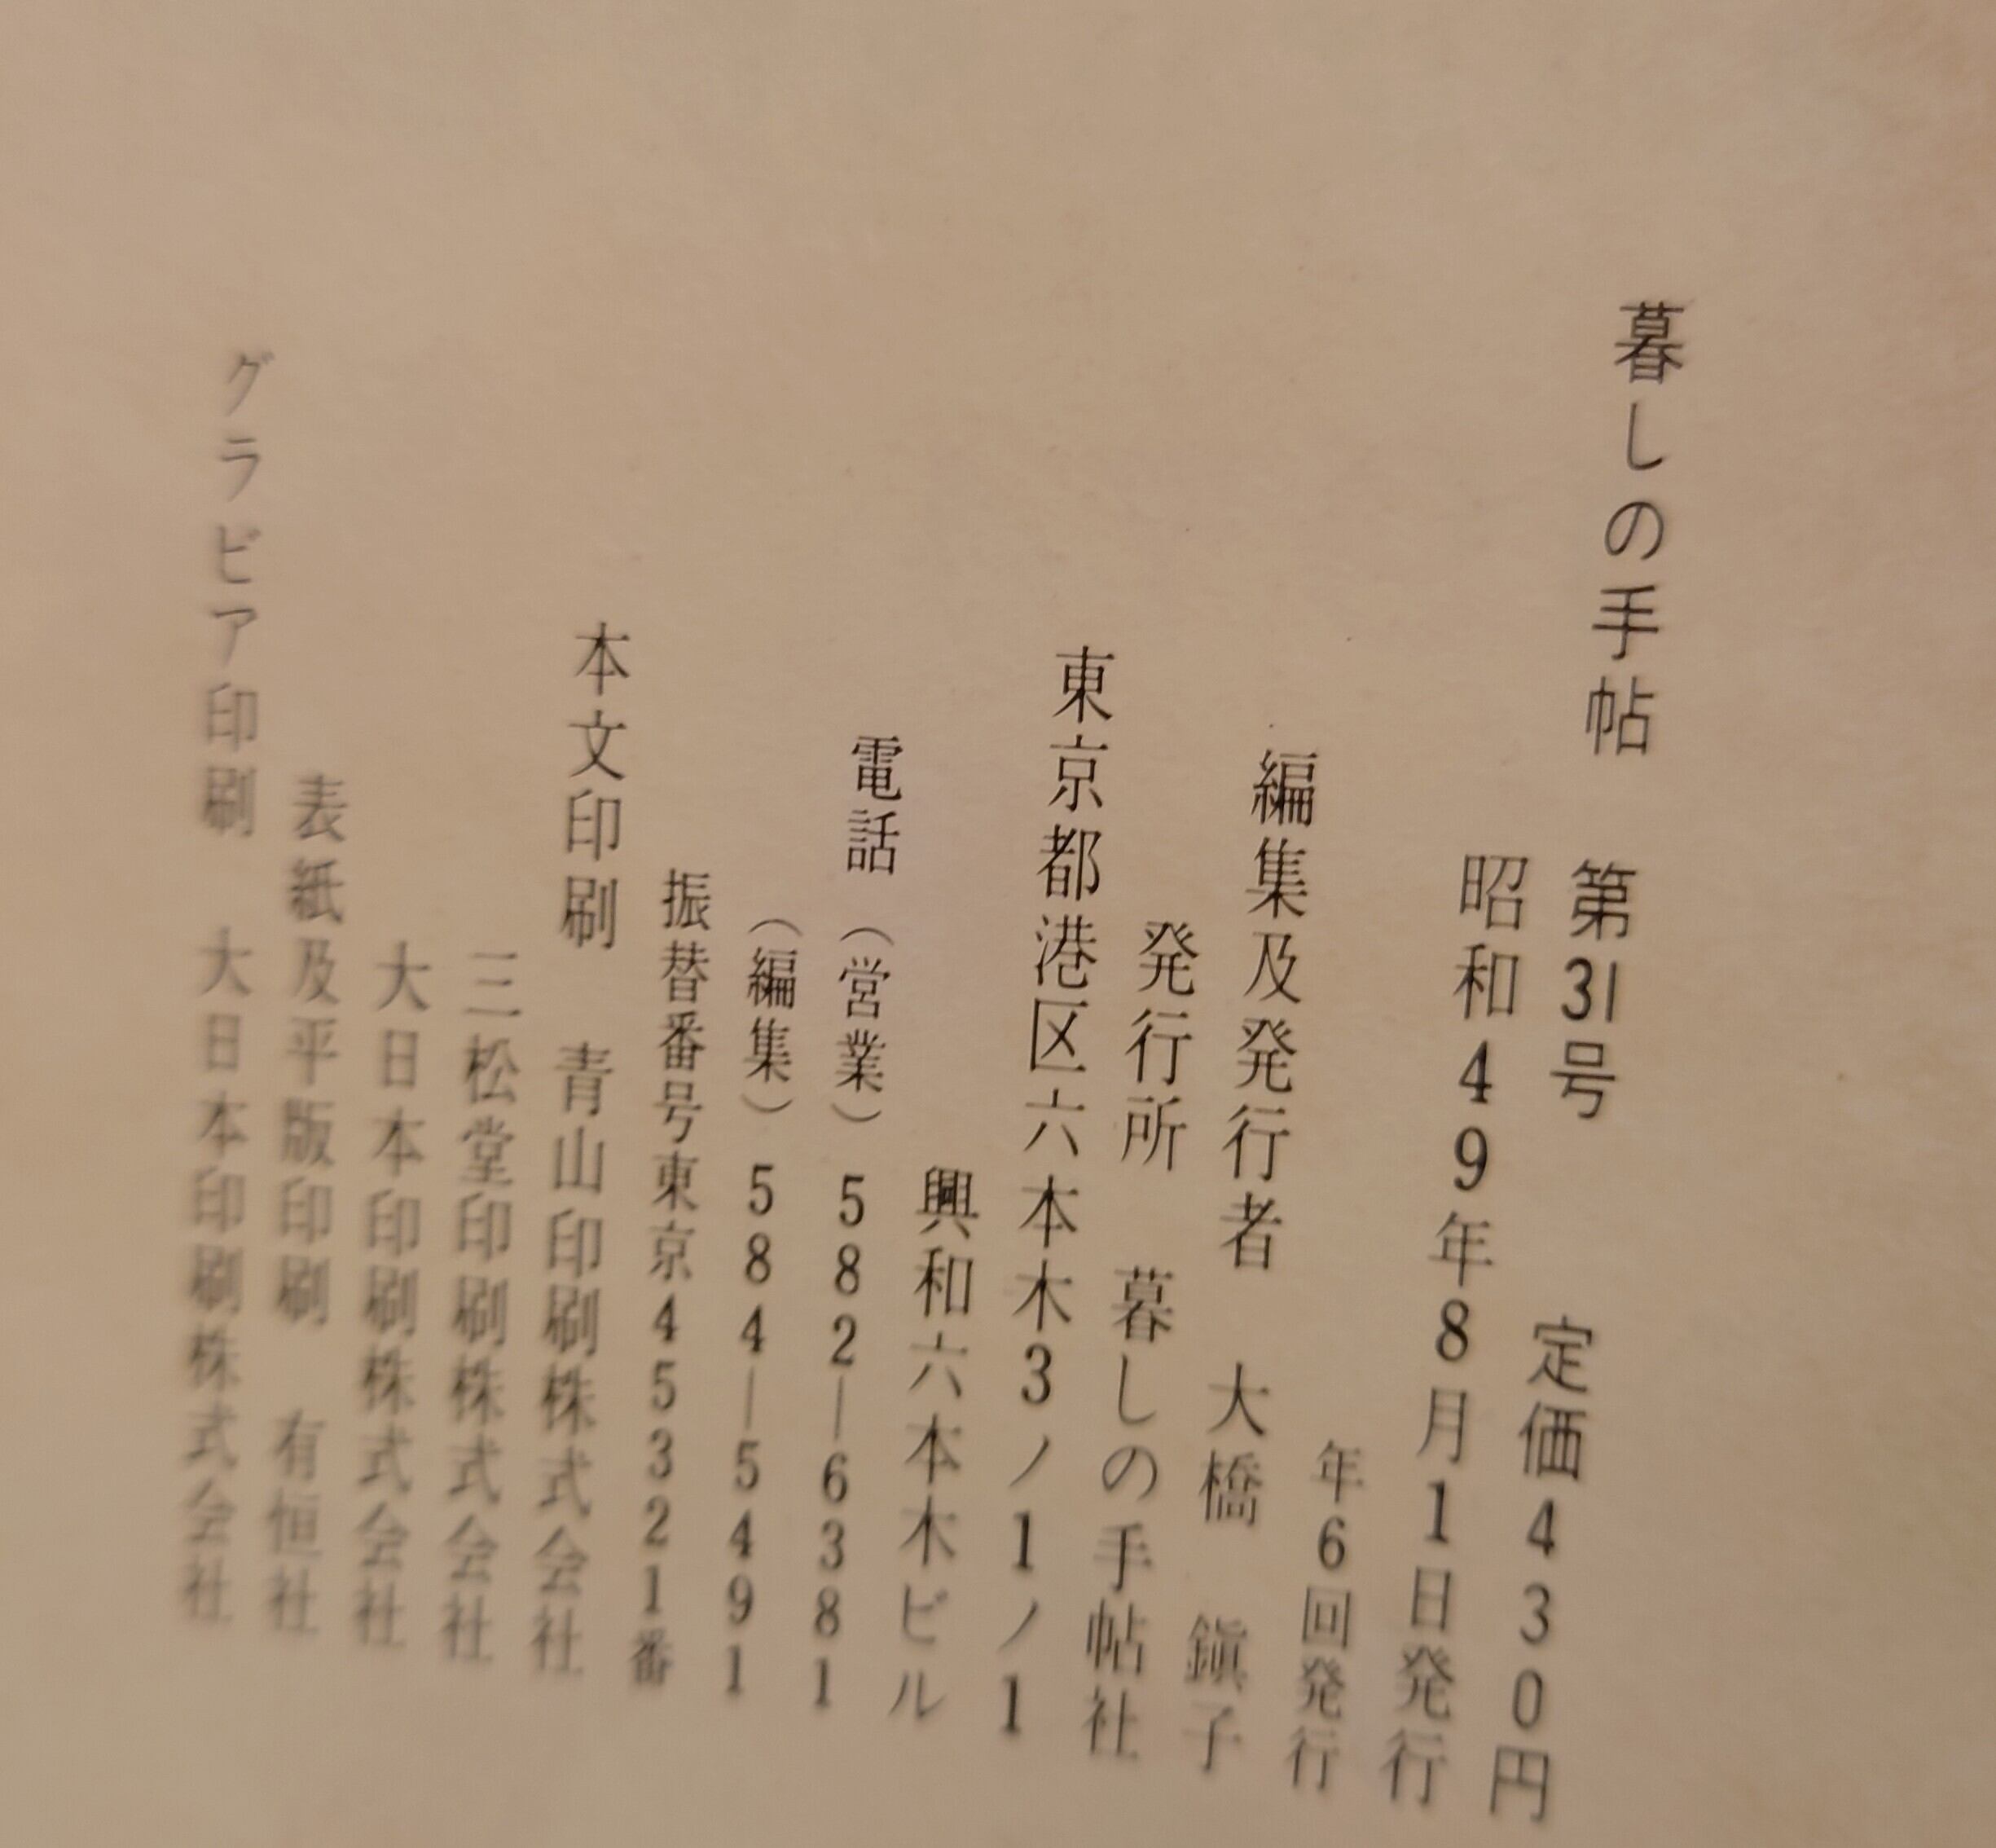 暮しの手帖　第31号　定価430円
昭和49年8月1日発行
年6回発行
編集及発行者　大橋　鎭子
発行所　暮しの手帖社
東京都港区六本木3ノ1ノ1
興和六本木ビル
電話（営業）582—6381
（編集）584—5491
振替番号東京45321番
本文印刷　青山印刷株式会社
三松堂印刷株式会社
大日本印刷株式会社
表紙及平版印刷　有恒社
グラビア印刷　大日本印刷株式会社